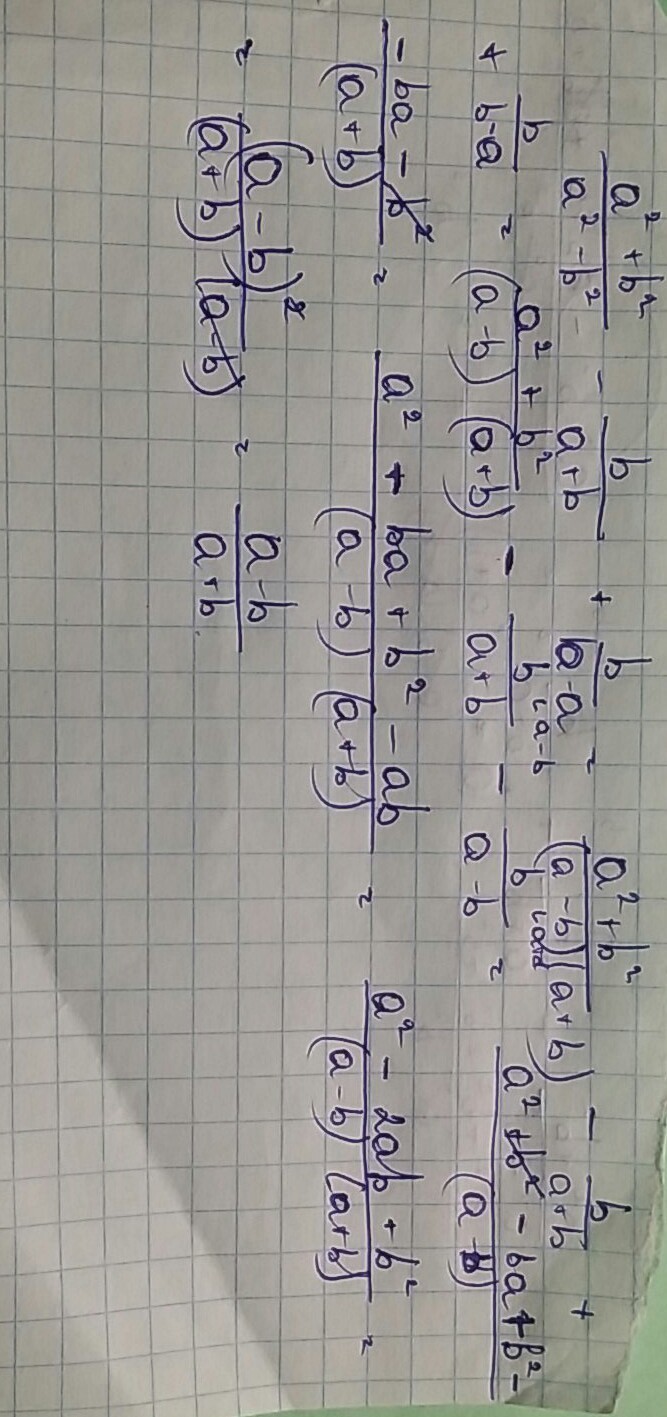 (a² + b²)/(a² - b²) - b/(a+b) + b/(b-a) = (a² + b²)/((a-b)(a+b)) - b/(a+b) +
+ b/(b-a) = (a² + b²)/((a-b)(a+b)) - b/(a+b) - b/(a-b) = (a² + b² - ba + b² -
- ba - b²)/((a-b)(a+b)) = (a² - ba + b² - ab)/((a-b)(a+b)) = (a² - 2ab + b²)/((a-b)(a+b)) =
= (a-b)²/((a+b)(a-b)) = (a-b)/(a+b)